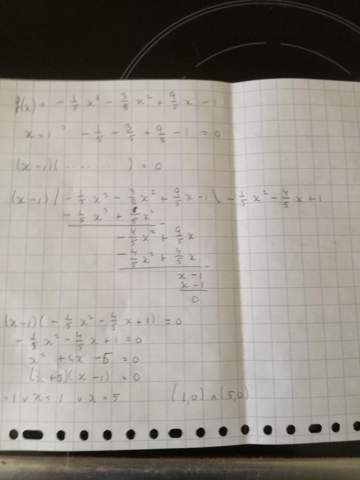 f(x) = - 1/5 x³ - 3/5 x² + 9/5 x - 1
x = 1 - 1/5 - 3/5 + 9/5 - 1 = 0
(x-1)(.........) = 0
(x-1) / - 1/5 x³ - 3/5 x² + 9/5 x - 1 \ - 1/5 x² - 4/5 x + 1
- 1/5 x³ + 1/5 x² -
- 4/5 x² + 9/5 x
- 4/5 x² + 4/5 x -
x - 1
x - 1
0
(x-1)(- 1/5 x² - 4/5 x + 1) = 0
- 1/5 x² - 4/5 x + 1 = 0
x² + 4x - 5 = 0
(x+5)(x-1) = 0
=1 v x = 1 v x = 5 (1,0) n (5,0)